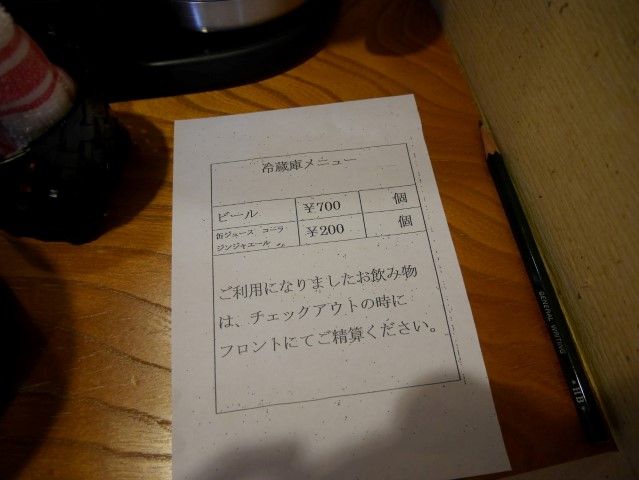 冷蔵庫メニュー
ビール ￥700 個
缶ジュース コーラ
ジンジャエール ￥200 個
ご利用になりましたお飲み物
は、チェックアウトの時に
フロントにてご精算ください。
GENERAL WRITING
HB